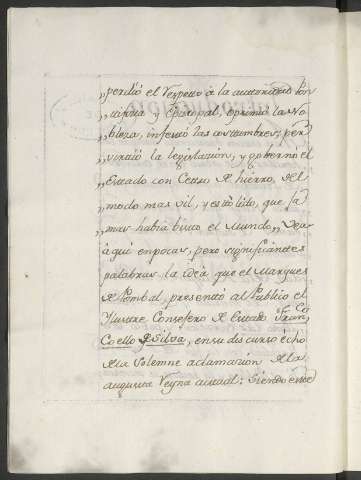 ,,perdió el Respetto à la autoridad Pon
,,tificia y Episcopal, oprimió la No
,,bleza, infestó las costumbres, per
,,virtió la legislazion, y gobernó el
,,Estado con Cettro de hierro, del
,,modo mas vil, y estólido, que ja
,,mas habia visto el Mundo,, Vea
aqui en pocas, pero significantes
palabras la idea que el Marques
de Pombal, presentó al Publico el
Ilustre Consejero de Estado Franco
Coello de Silva, en su discurso écho
de la Solemne aclamazion de la
augusta Reyna actual; siendo este